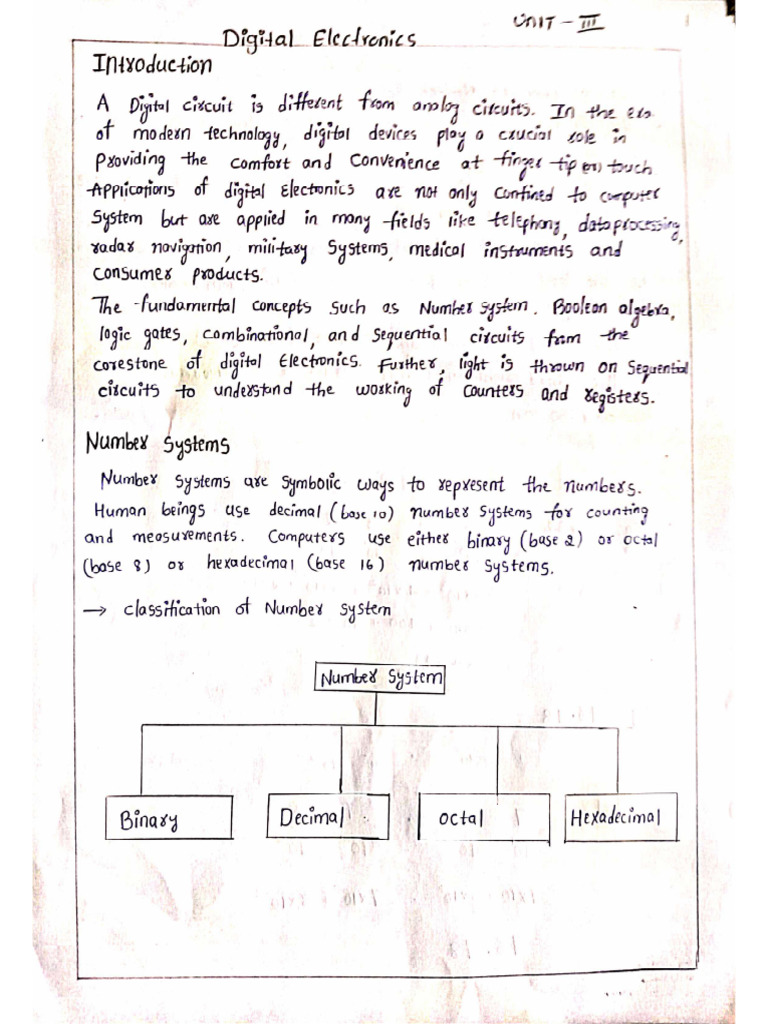 UNIT - III
Digital Electronics
Introduction
A Digital circuit is different from analog circuits. In the era
of modern technology, digital devices play a crucial role in
Providing the comfort and Convenience at finger tip (or) touch
Applications of digital Electronics are not only confined to computer
System but are applied in many fields like telephony, data processing,
radar navigation, military Systems, medical instruments and
Consumer products.
The fundamental concepts such as Number system. Boolean algebra,
logic gates, combinational, and sequential circuits from the
corestone of digital Electronics. Further, light is thrown on Sequential
circuits to understand the working of counters and registers.
Number Systems
Number systems are symbolic ways to represent the numbers.
Human beings use decimal (base 10) number systems for counting
and measurements. Computers use either binary (base 2) or octal
(base 8) or hexadecimal (base 16) number systems.
→ classification of Number system
Number System
Binary Decimal octal Hexadecimal